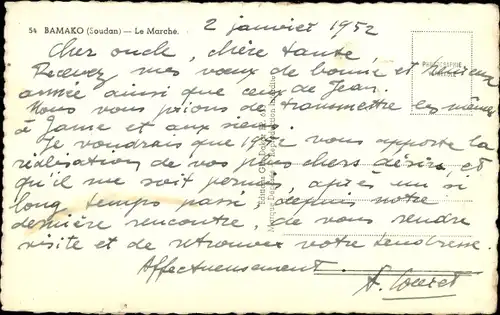 54 BAMAKO (Soudan) — Le Marché.
2 janvier 1952
Cher oncle, chère tante,
Recevez mes vœux de bonne et heureuse
année ainsi que ceux de Jean.
Nous vous prions de transmettre les mêmes
à Jeanne et aux siens.
Je voudrais que 1952 vous apporte la
réalisation de vos plus chers désirs, et
qu'il me soit permis, après un si
long temps passé, depuis notre
dernière rencontre, de vous rendre
visite et de retrouver votre tendresse.
Affectueusement